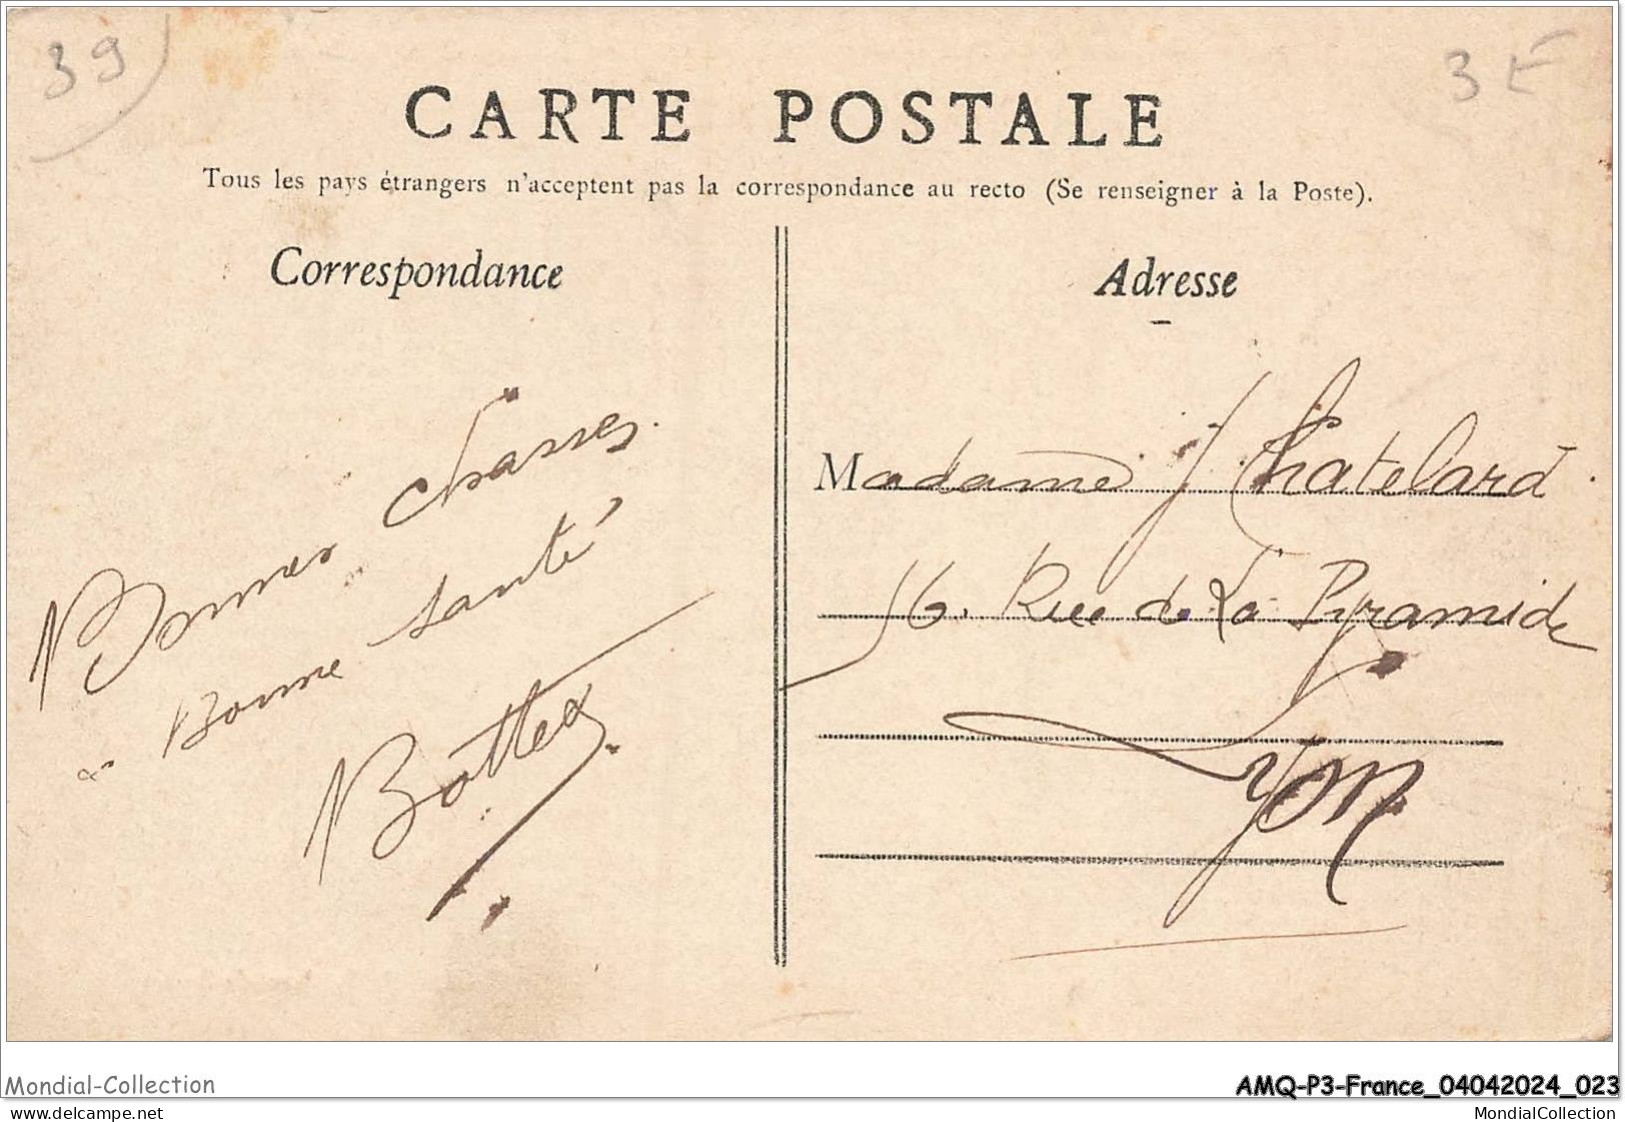 39
3 E
CARTE POSTALE
Tous les pays étrangers n'acceptent pas la correspondance au recto (Se renseigner à la Poste).
Correspondance
Bonnes chasses.
Bonne santé
Bottex
Adresse
Madame J Chatelard.
56. Rue de La Pyramide
Lyon
Mondial-Collection
AMQ-P3-France_04042024_023
www.delcampe.net
MondialCollection